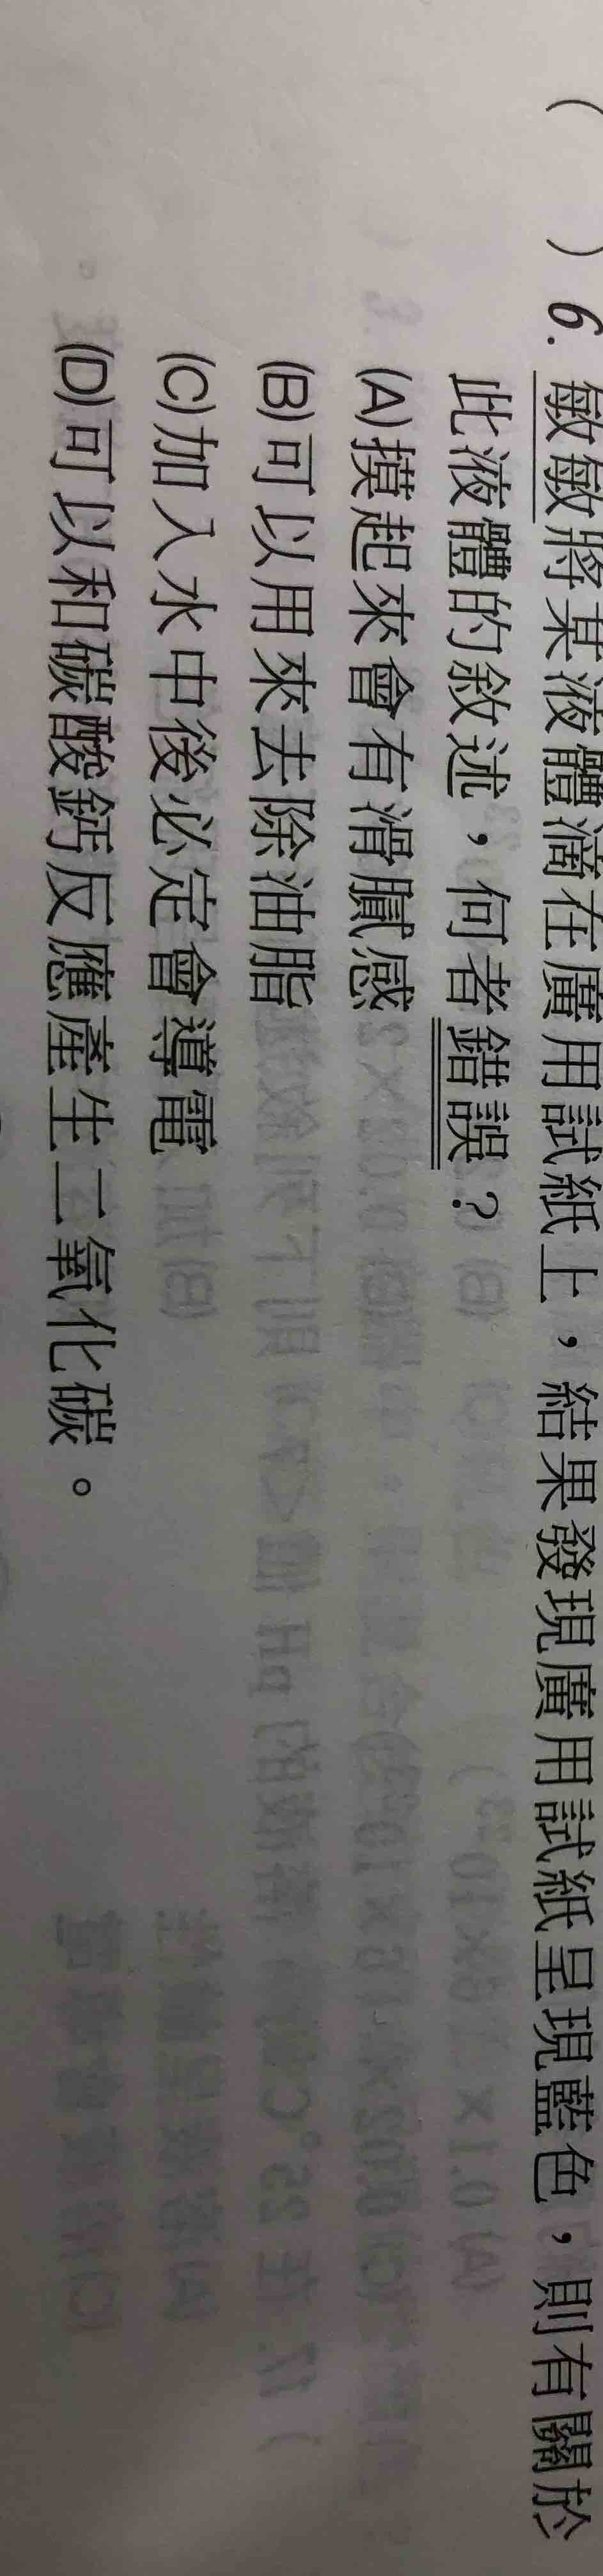 (　　) 6. 敏敏將某液體滴在廣用試紙上，結果發現廣用試紙呈現藍色，則有關於
此液體的敘述，何者錯誤？
(A)摸起來會有滑膩感
(B)可以用來去除油脂
(C)加入水中後必定會導電
(D)可以和碳酸鈣反應產生二氧化碳。